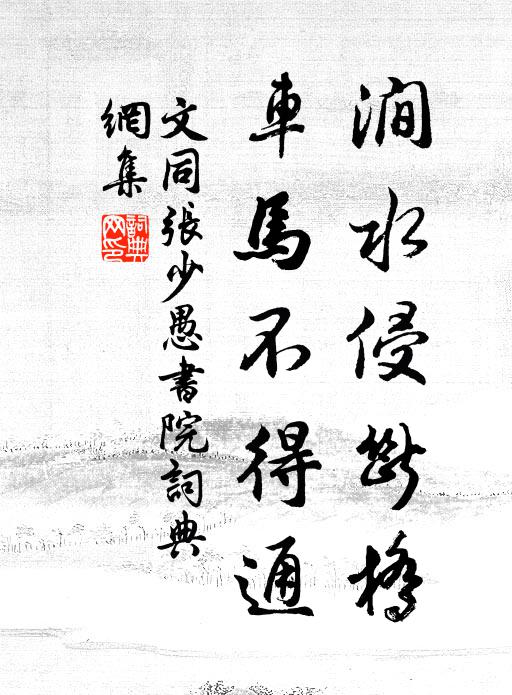 澗水侵斷橋
車馬不得通
文同張少愚書院詞典
網集
詞典
网印